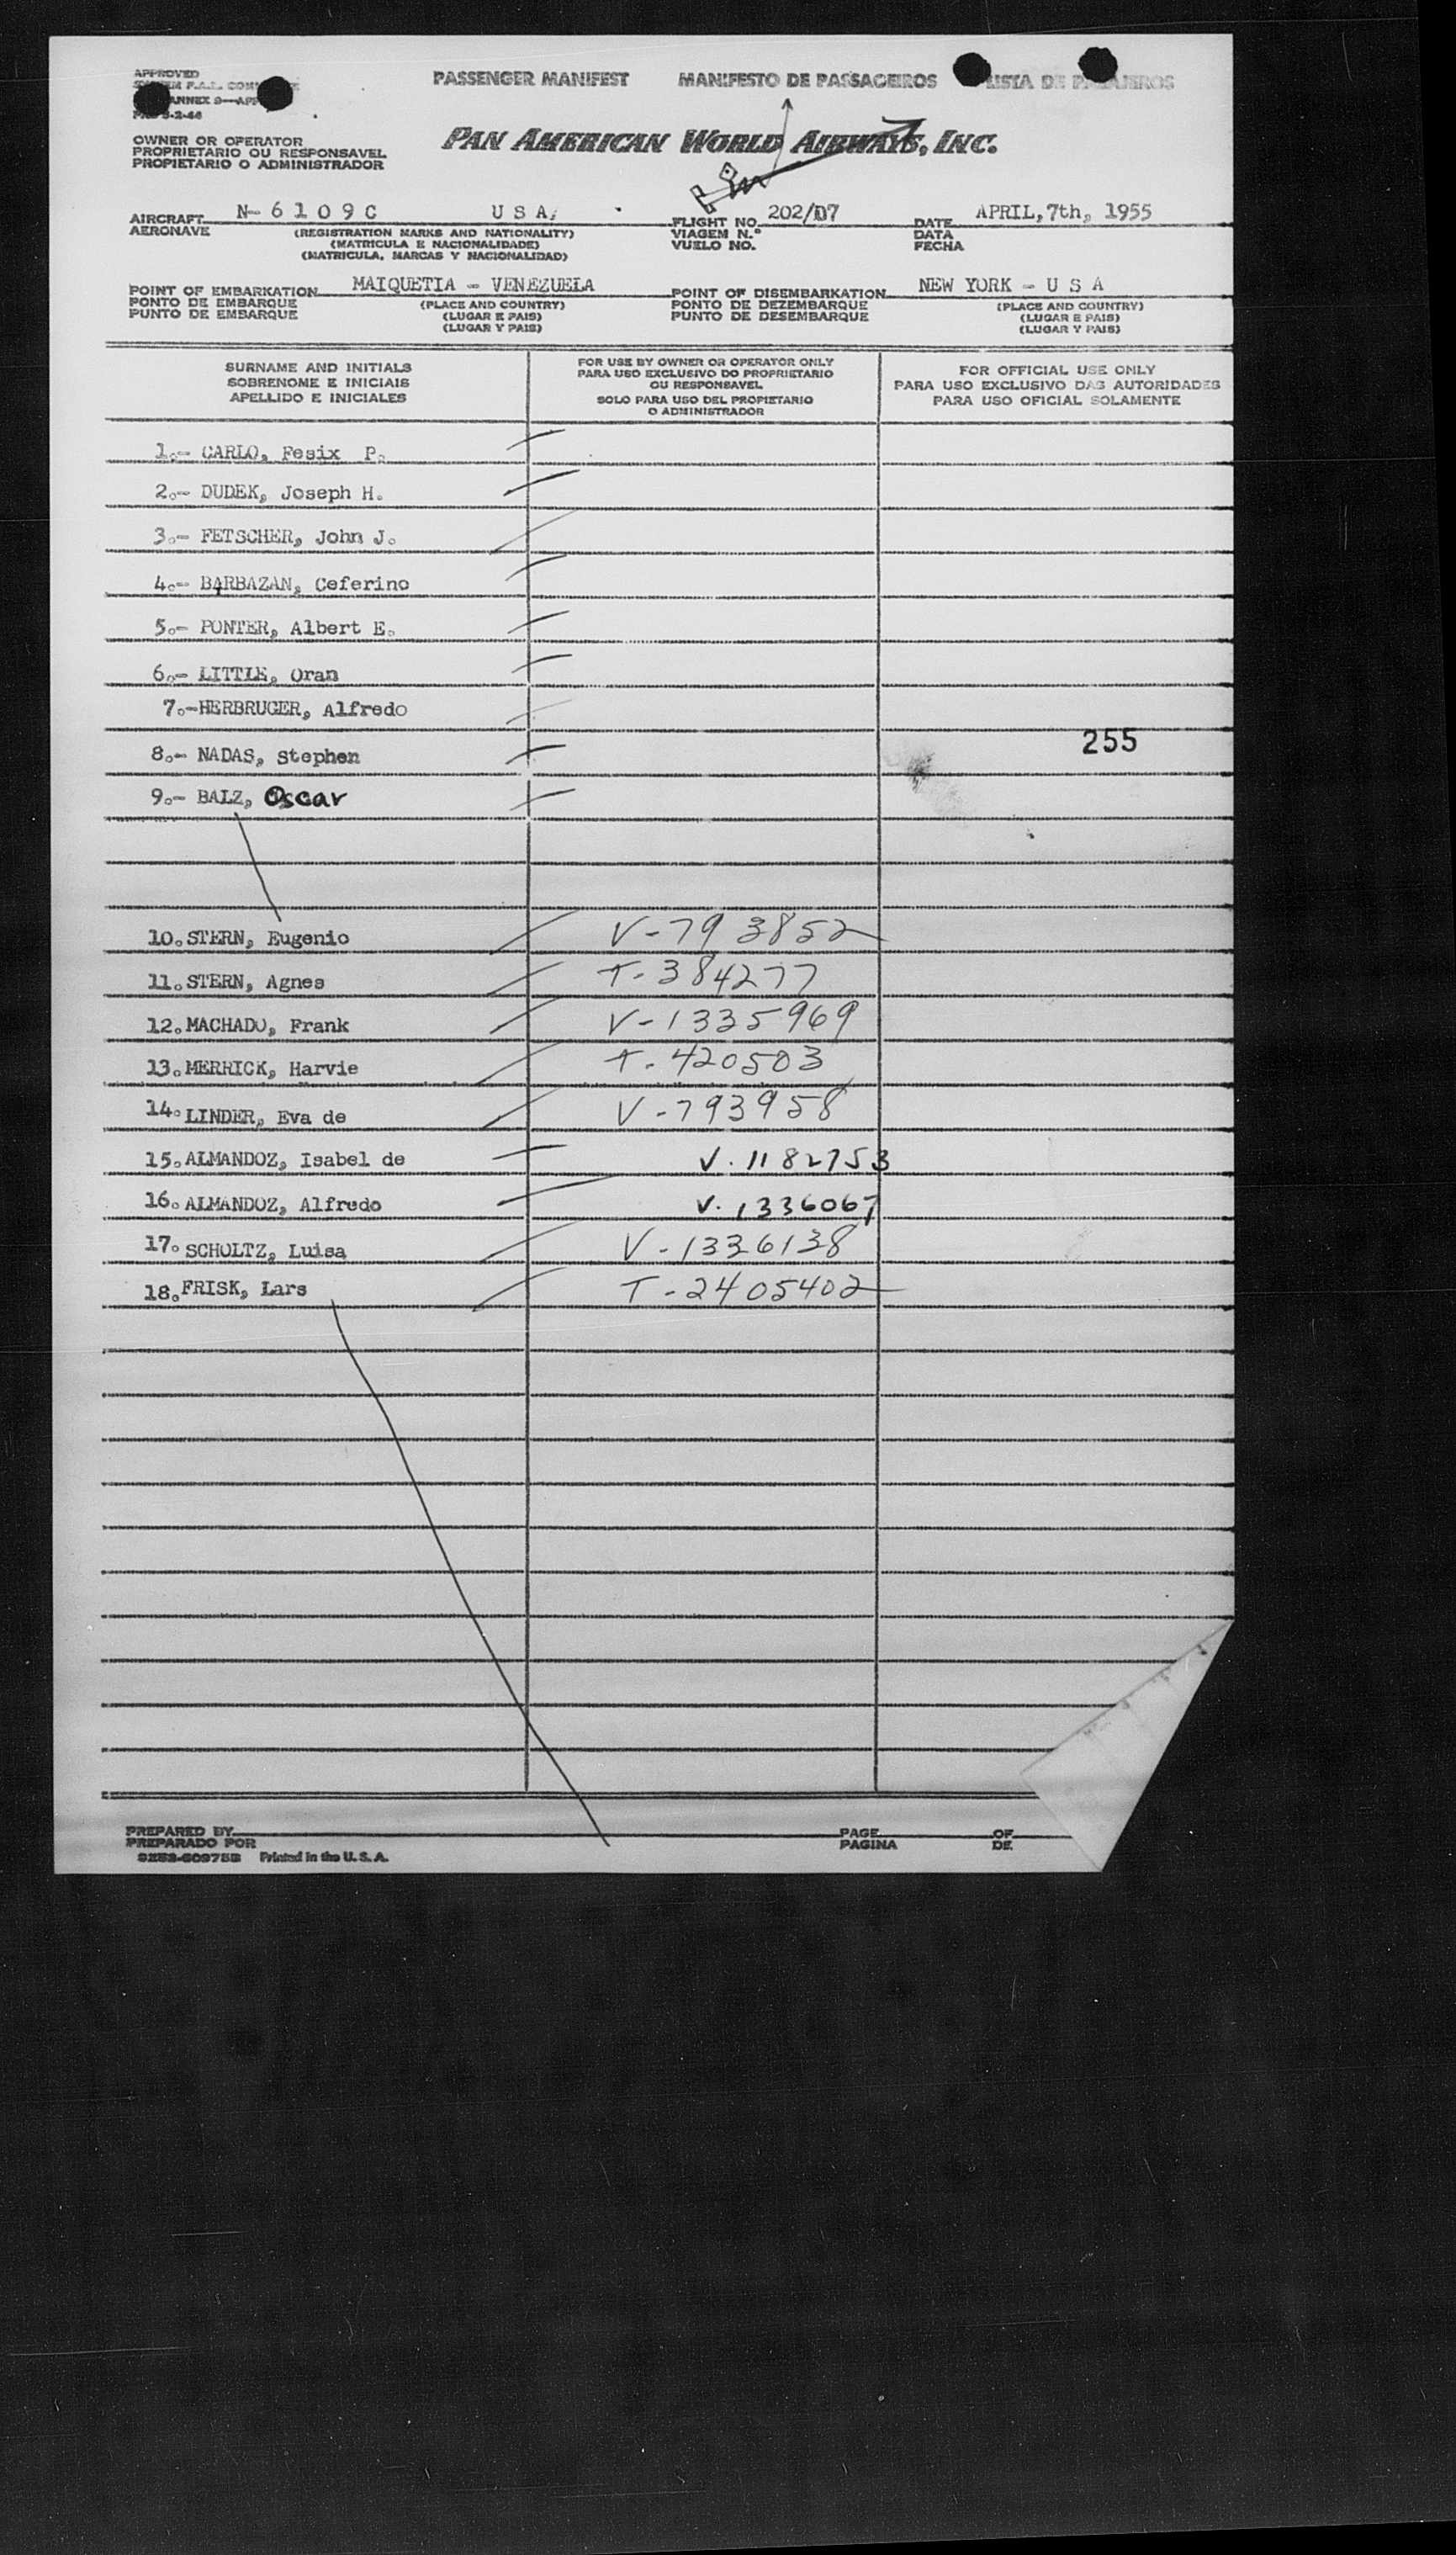 PASSENGER MANIFEST MANIFESTO DE PASSAGEIROS LISTA DE PASAJEROS
APPROVED
ANNEX 9—APP
OWNER OR OPERATOR
PROPRIETARIO OU RESPONSAVEL
PROPIETARIO O ADMINISTRADOR
PAN AMERICAN WORLD AIRWAYS, INC.
AIRCRAFT N-6109C USA, FLIGHT NO. 202/D7 DATE APRIL, 7th, 1955
AERONAVE (REGISTRATION MARKS AND NATIONALITY) VIAGEM N.º DATA
(MATRICULA E NACIONALIDADE) VUELO NO. FECHA
(MATRICULA, MARCAS Y NACIONALIDAD)
POINT OF EMBARKATION MAIQUETIA - VENEZUELA POINT OF DISEMBARKATION NEW YORK - U S A
PONTO DE EMBARQUE (PLACE AND COUNTRY) PONTO DE DEZEMBARQUE (PLACE AND COUNTRY)
PUNTO DE EMBARQUE (LUGAR E PAIS) PUNTO DE DESEMBARQUE (LUGAR E PAIS)
(LUGAR Y PAIS) (LUGAR Y PAIS)
SURNAME AND INITIALS
SOBRENOME E INICIAIS
APELLIDO E INICIALES
FOR USE BY OWNER OR OPERATOR ONLY
PARA USO EXCLUSIVO DO PROPRIETARIO
OU RESPONSAVEL
SOLO PARA USO DEL PROPIETARIO
O ADMINISTRADOR
FOR OFFICIAL USE ONLY
PARA USO EXCLUSIVO DAS AUTORIDADES
PARA USO OFICIAL SOLAMENTE
1.- CARLO, Fesix P.
2.- DUDEK, Joseph H.
3.- FETSCHER, John J.
4.- BARBAZAN, Ceferino
5.- PONTER, Albert E.
6.- LITTLE, Oran
7.-HERBRUGER, Alfredo
255
8.- NADAS, Stephen
9.- BALZ, Oscar
10. STERN, Eugenio V-793852
11. STERN, Agnes T-384277
12. MACHADO, Frank V-1335969
13. MERRICK, Harvie T-420503
14. LINDER, Eva de V-793958
15. ALMANDOZ, Isabel de V.1182753
16. ALMANDOZ, Alfredo V.1336067
17. SCHOLTZ, Luisa V-1336138
18. FRISK, Lars T-2405402
PREPARED BY PAGE OF
PREPARADO POR PAGINA DE
Printed in the U. S. A.